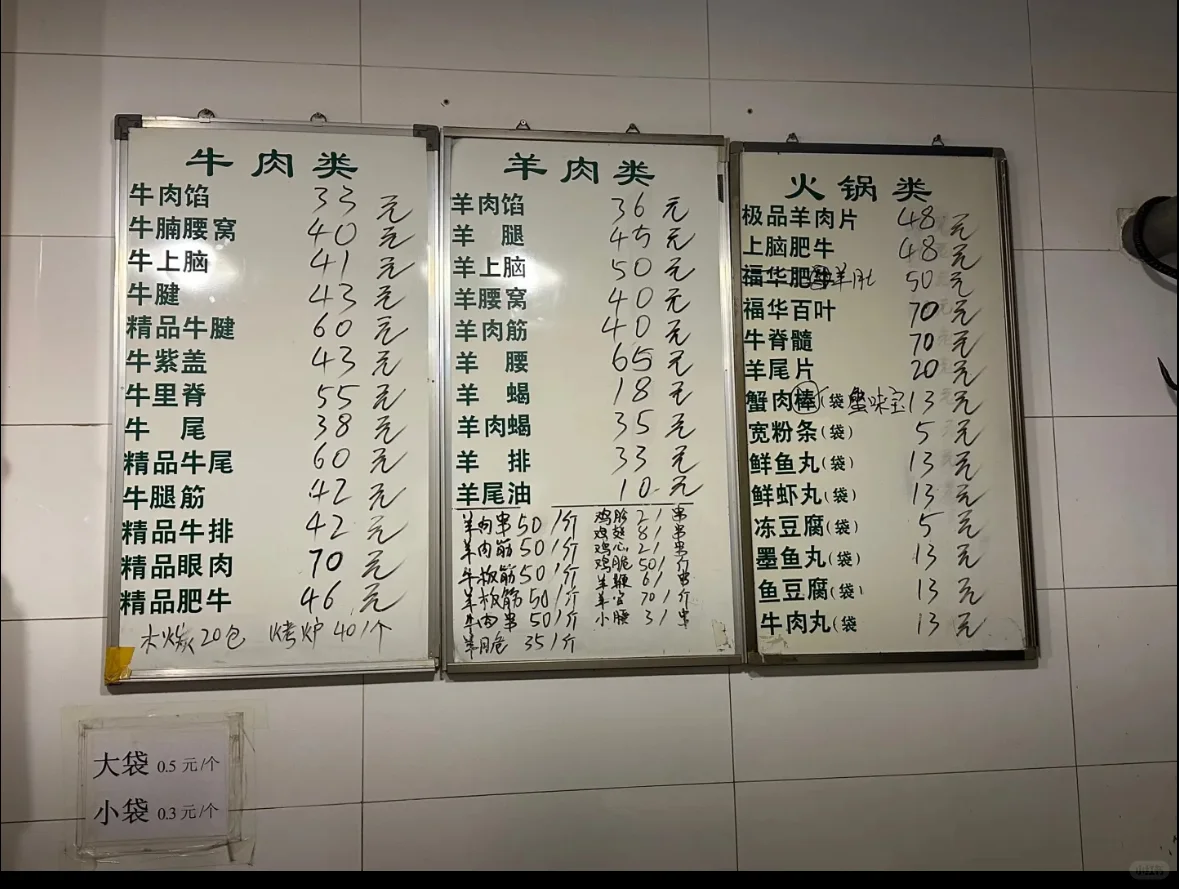 牛肉类
牛肉馅 33 元
牛腩腰窝 40 元
牛上脑 41 元
牛腱 43 元
精品牛腱 60 元
牛紫盖 43 元
牛里脊 55 元
牛 尾 38 元
精品牛尾 60 元
牛腿筋 42 元
精品牛排 42 元
精品眼肉 70 元
精品肥牛 46 元
木炭20包 烤炉 40/个
羊肉类
羊肉馅 36 元
羊 腿 45 元
羊上脑 50 元
羊腰窝 40 元
羊肉筋 40 元
羊 腰 65 元
羊 蝎 18 元
羊肉蝎 35 元
羊 排 33 元
羊尾油 10 元
羊肉串 50/斤
羊肉筋 50/斤
牛板筋 50/斤
羊板筋 50/斤
牛肉串 50/斤
35/斤
鸡胗 2/串
鸡翅 8/串
鸡心 2/串
鸡脆 50/斤
羊鞭 6/串
羊宝 70/斤
小腰 3/串
火锅类
极品羊肉片 48 元
上脑肥牛 48 元
福华肥 羊 50 元
福华百叶 70 元
牛脊髓 70 元
羊尾片 20 元
蟹肉棒(袋 蟹味宝 13 元
宽粉条(袋) 5 元
鲜鱼丸(袋) 13 元
鲜虾丸(袋) 13 元
冻豆腐(袋) 5 元
墨鱼丸(袋) 13 元
鱼豆腐(袋) 13 元
牛肉丸(袋 13 元
大袋 0.5 元/个
小袋 0.3 元/个
小红书